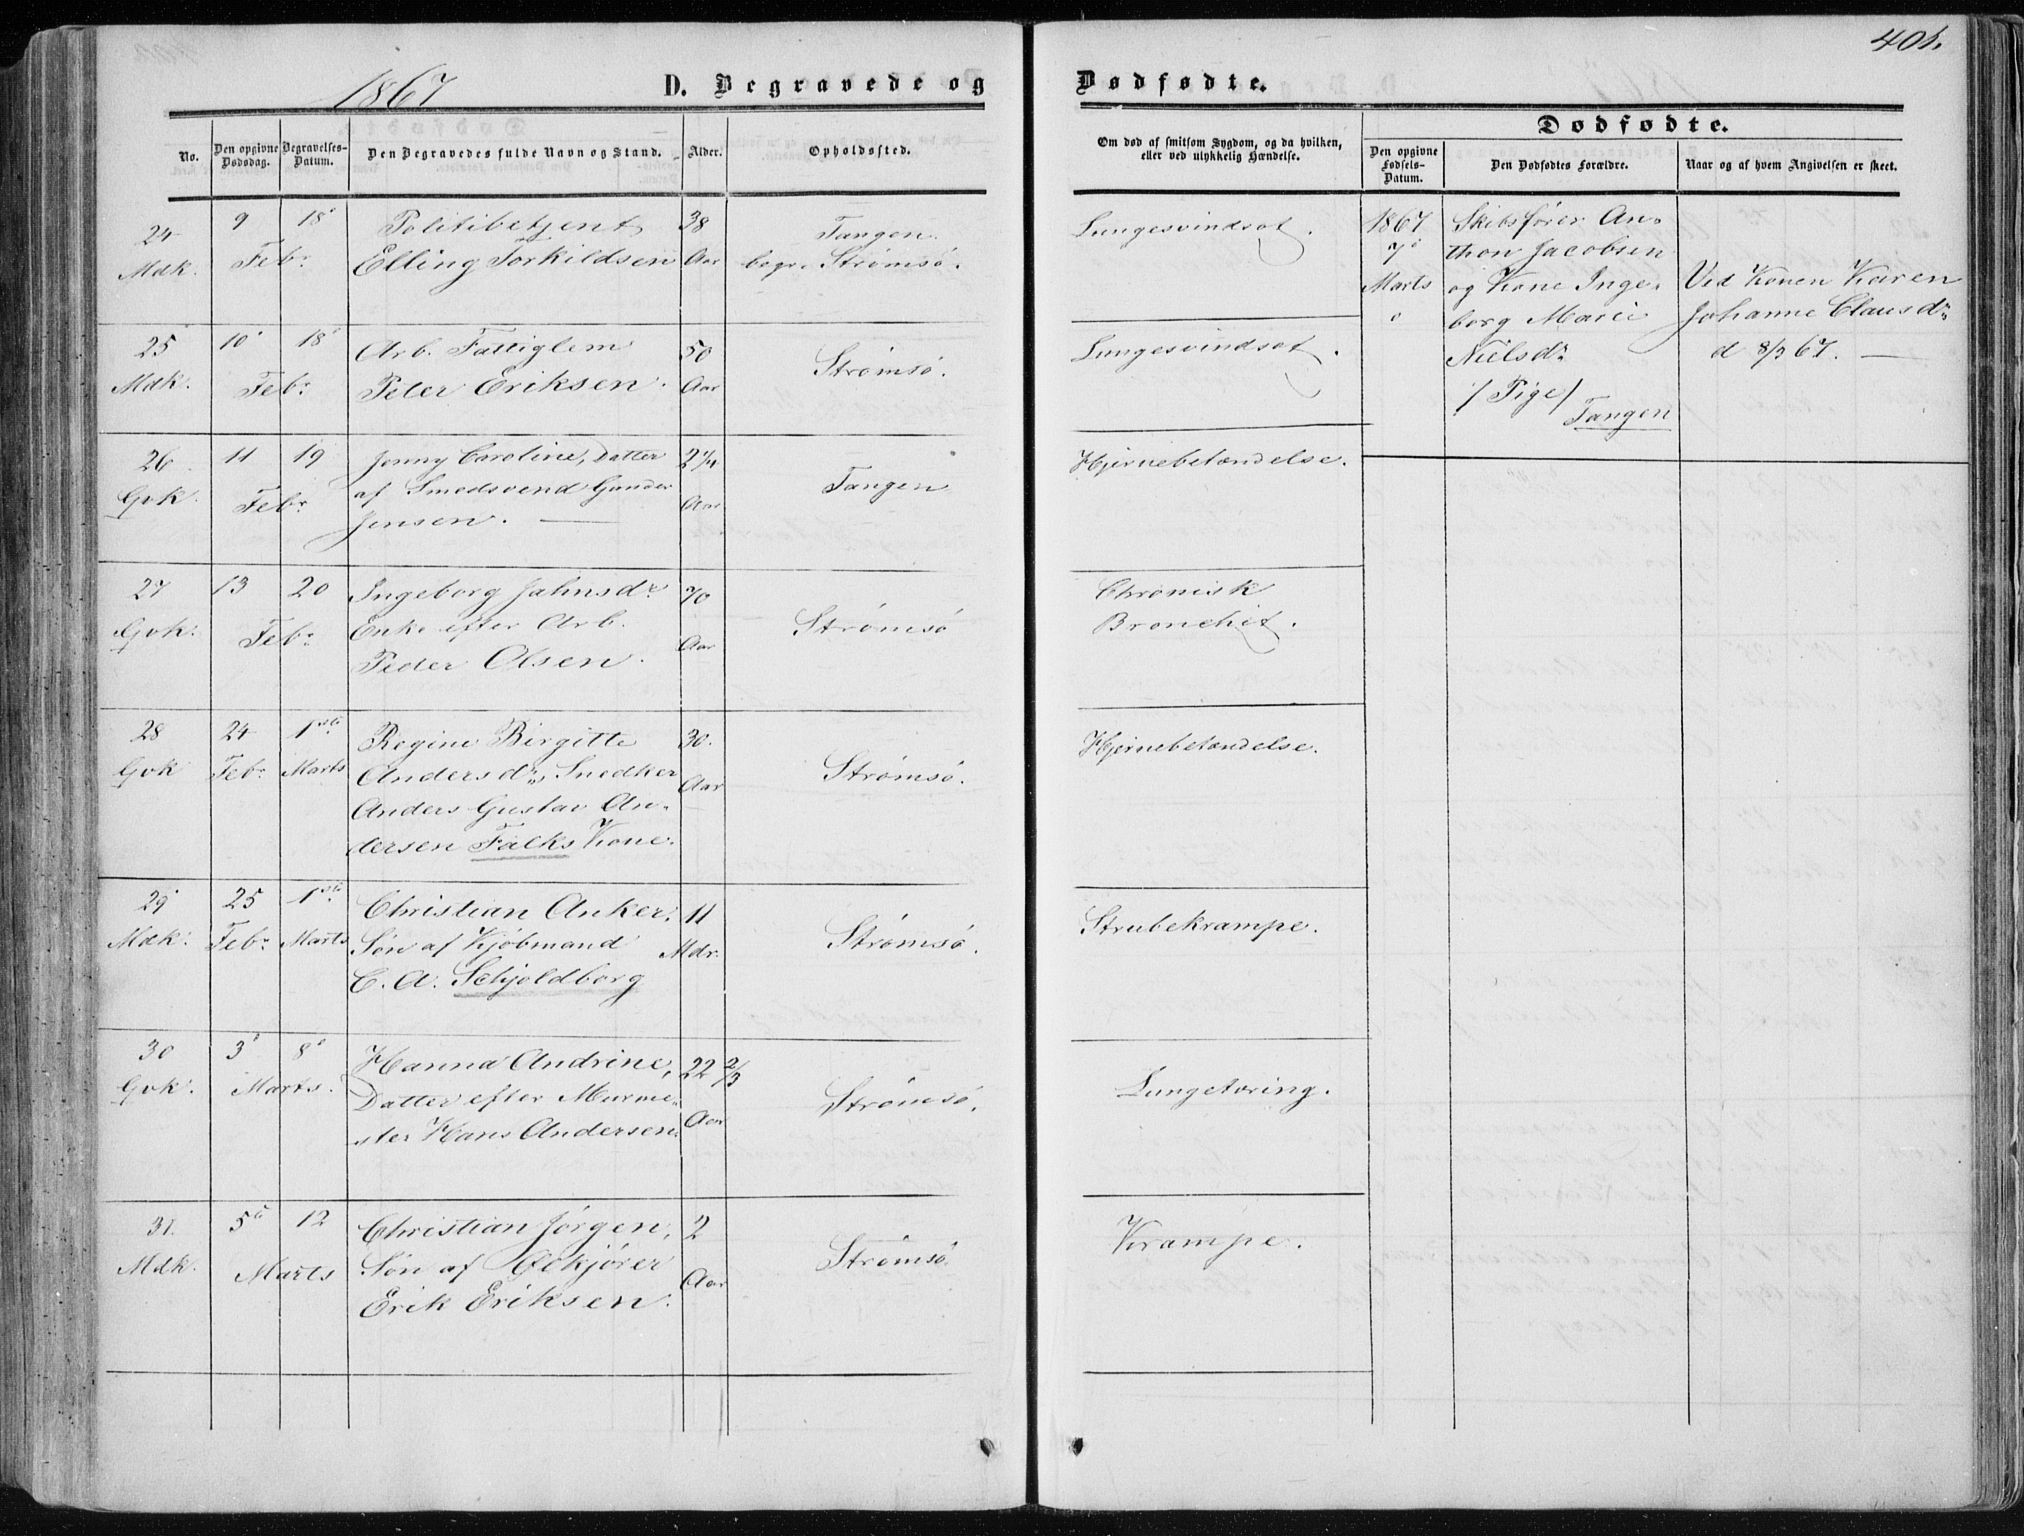 401.
1867 D. Begravede og Dødfødte.
No. Den opgivne Dødsdag. Begravelses-Datum. Den Begravedes fulde Navn og Stand. Alder. Opholdssted.
Om død af smitsom Sygdom, og da hvilken, eller ved ulykkelig Hændelse.
Dødfødte.
Den opgivne Fødsels-Datum. Den Dødfødtes Forældre. Naar og af hvem Angivelsen er skeet.
24 9 18 Politibetjent 38 Tangen.
Mdk. Febr. Elling Torkildsen Aar begr. Strømsø.
Lungesvindsot.
25 10 18 Arb. Fattiglem 50 Strømsø.
Mdk. Febr. Peter Eriksen. Aar
Lungesvindsot.
26 11 19 Jenny Caroline, Datter 2 1/4
Gvk. Febr. af Smedsvend Gunder Aar Tangen
Jensen.
Hjernebetændelse.
27 13 20 Ingeborg Jahnsdr. 70
Gvk. Febr. Enke efter Arb. Aar Strømsø
Peder Olsen.
Chronisk
Bronchit.
28 24 1ste Regine Birgitte 30.
Gvk Febr. Marts Andersdr., Snedker Aar Strømsø.
Anders Gustav An-
dersen Falks Kone.
Hjernebetændelse.
29 25 1ste Christian Anker, 11
Mdk. Febr. Marts Søn af Kjøbmand Mdr. Strømsø.
C. A. Schjoldborg
Strubekrampe.
30 3 8 Hanna Andrine, 22 2/3
Gvk. Marts. Datter efter Murme-
ster Hans Andersen. Aar Strømsø.
Lungetæring.
31. 5te 12 Christian Jørgen, 2
Mdk. Marts Søn af Aar Strømsø
Erik Eriksen.
Krampe.
1867 Skibsfører An-
7 thon Jacobsen
Marts og Kone Inge- Ved Konen Karen
borg Marie Johanne Clausdr.
Nielsdr. d 8/3 67.
/ Pige /
Tangen